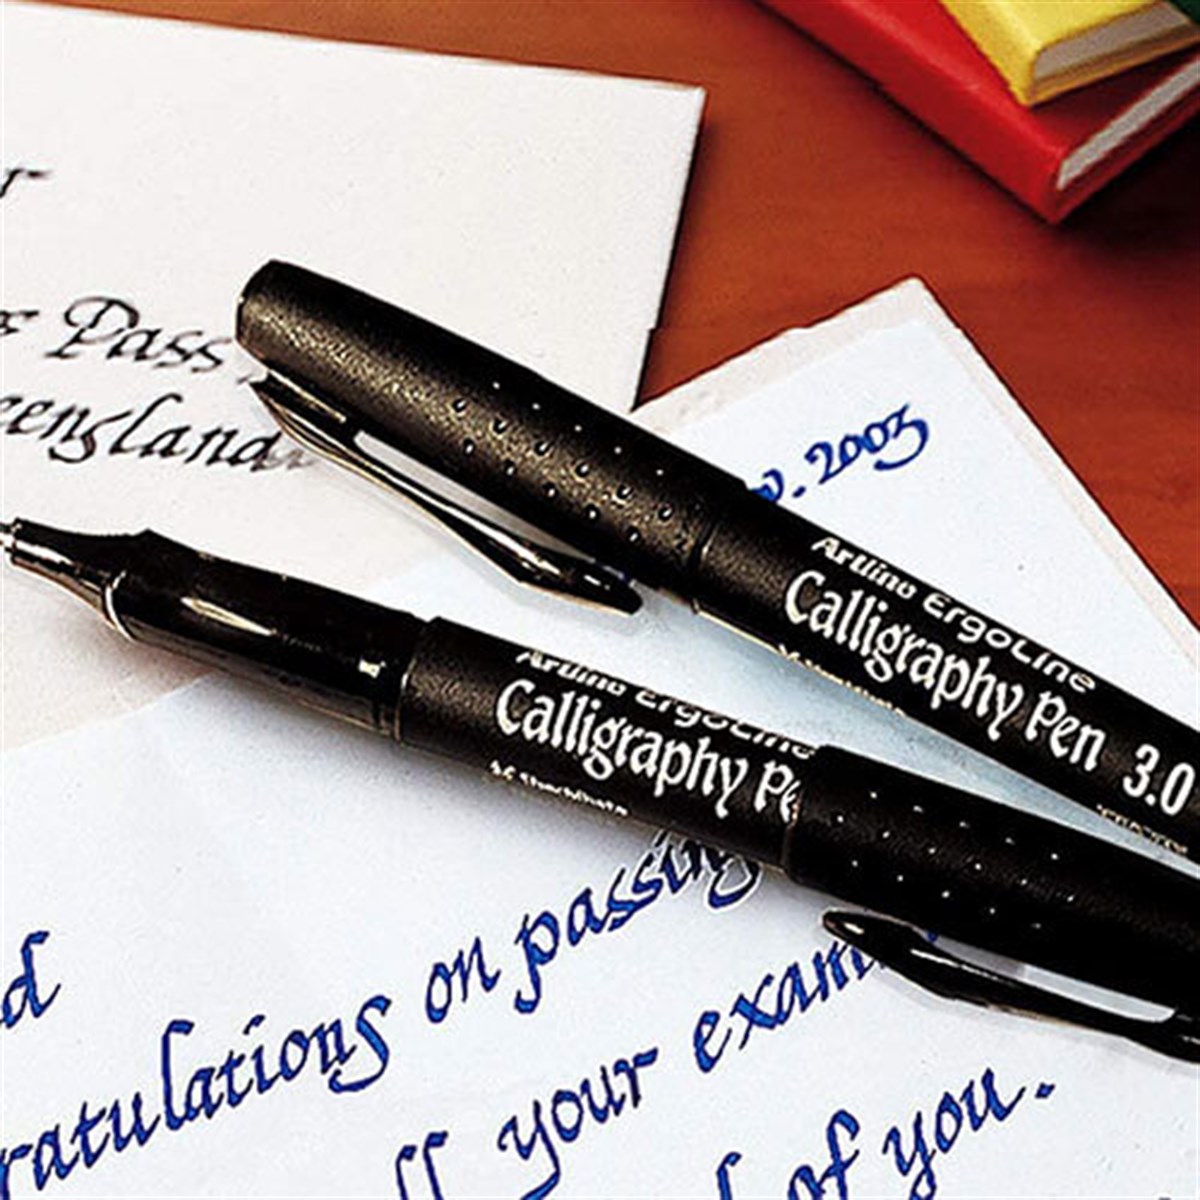 Pass
eengland
v. 2003
Artline ErgoLine
Calligraphy Pen 3.0
Artline ErgoLine
Calligraphy Pe
d
ratulations on passing
ll your exam
of you.